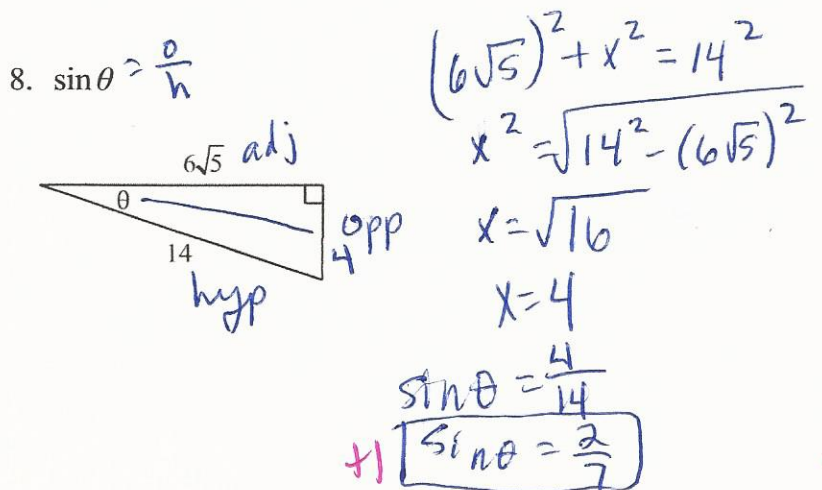 8. sinθ = o/h
6√5 adj
θ
14
hyp
opp
4
(6√5)² + x² = 14²
x² = √14² - (6√5)²
x = √16
x = 4
sinθ = 4/14
+1 sinθ = 2/7